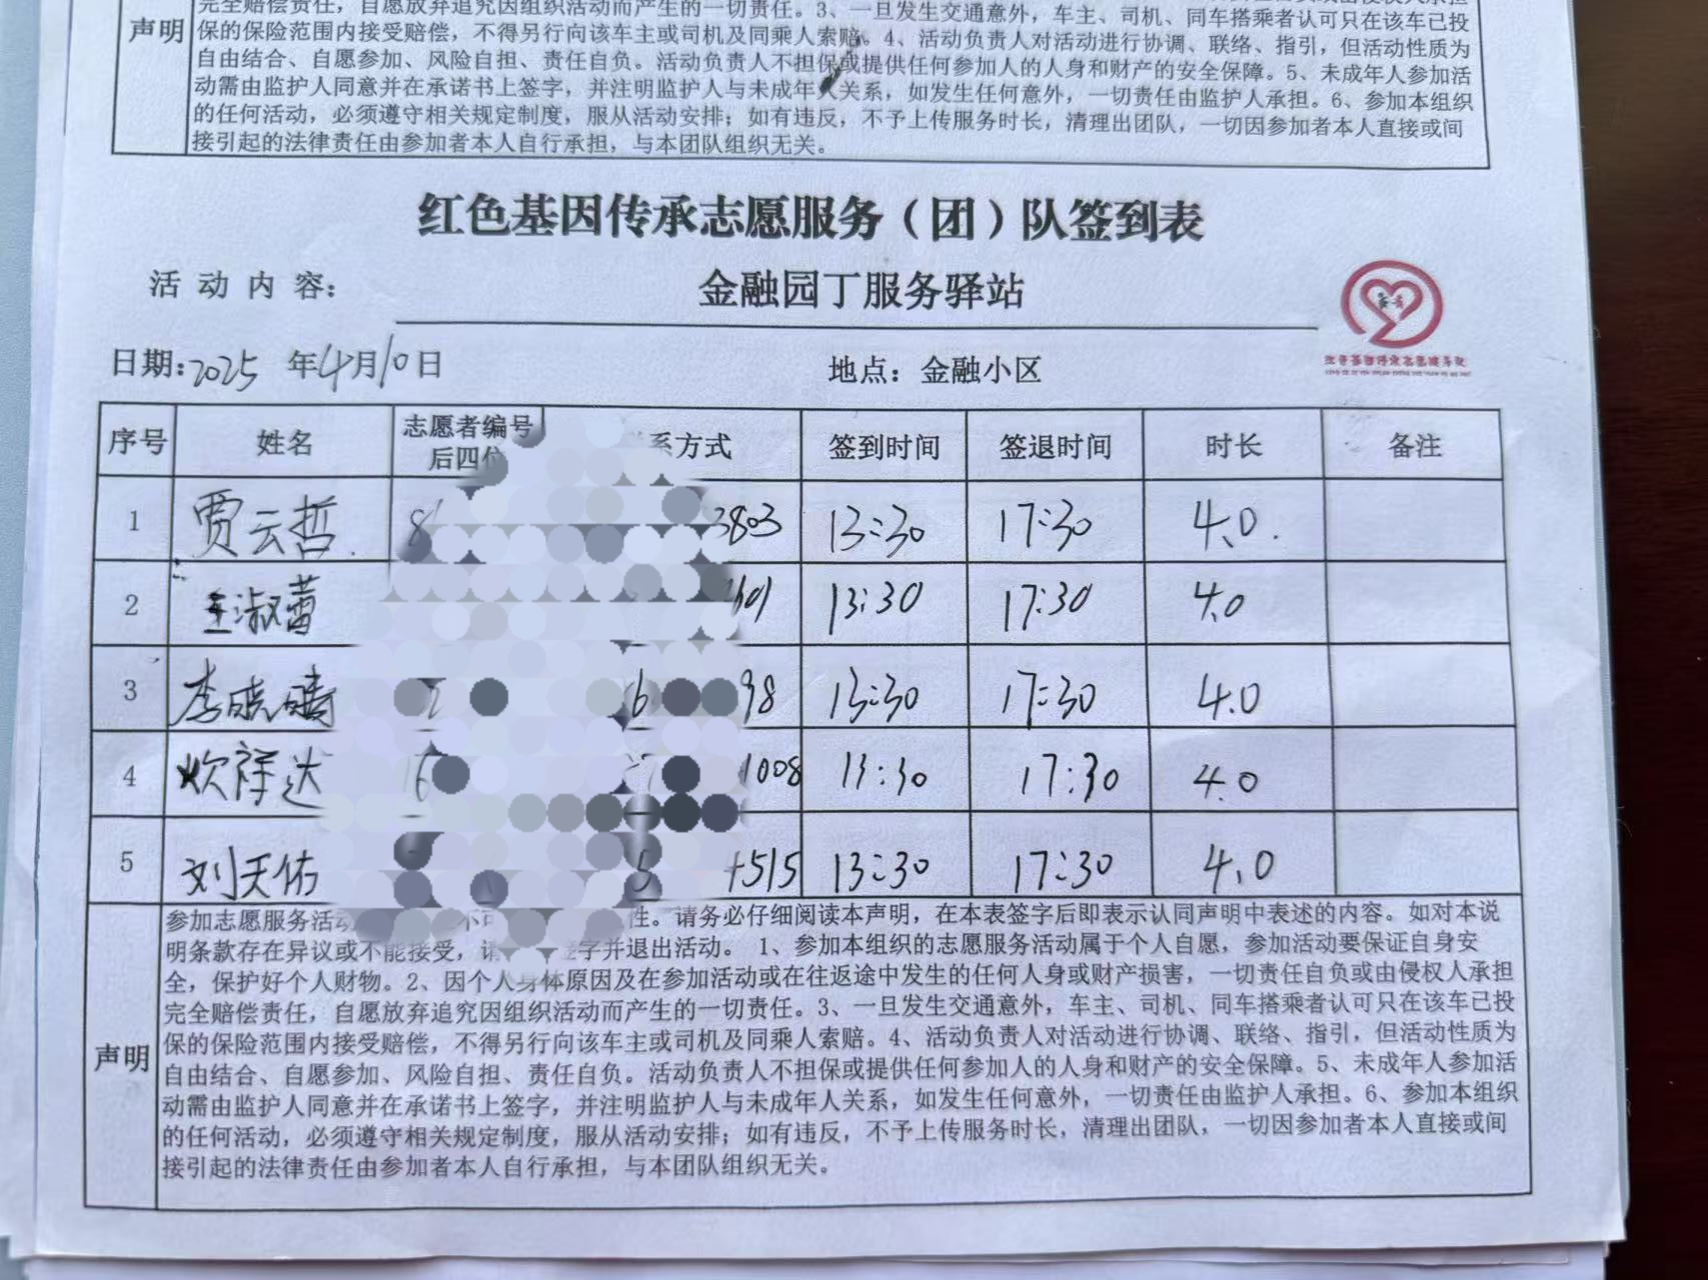 完全赔偿责任，自愿放弃追究因组织活动而产生的一切责任。3、一旦发生交通意外，车主、司机、同车搭乘者认可只在该车已投
声明
保的保险范围内接受赔偿，不得另行向该车主或司机及同乘人索赔。4、活动负责人对活动进行协调、联络、指引，但活动性质为
自由结合、自愿参加、风险自担、责任自负。活动负责人不担保或提供任何参加人的人身和财产的安全保障。5、未成年人参加活
动需由监护人同意并在承诺书上签字，并注明监护人与未成年人关系，如发生任何意外，一切责任由监护人承担。6、参加本组织
的任何活动，必须遵守相关规定制度，服从活动安排；如有违反，不予上传服务时长，清理出团队，一切因参加者本人直接或间
接引起的法律责任由参加者本人自行承担，与本团队组织无关。
红色基因传承志愿服务（团）队签到表
活动内容： 金融园丁服务驿站
日期：2025 年4月10日 地点：金融小区
序号 姓名 志愿者编号 系方式 签到时间 签退时间 时长 备注
后四位
1 贾云哲 8 3803 13:30 17:30 4.0
2 王淑蕾 601 13:30 17:30 4.0
3 李晓晴 6 98 13:30 17:30 4.0
4 欢祥达 6 1008 13:30 17:30 4.0
5 刘天佑 5 4515 13:30 17:30 4.0
参加志愿服务活动 不可 性。请务必仔细阅读本声明，在本表签字后即表示认同声明中表述的内容。如对本说
明条款存在异议或不能接受，请 签字并退出活动。 1、参加本组织的志愿服务活动属于个人自愿，参加活动要保证自身安
全，保护好个人财物。2、因个人身体原因及在参加活动或在往返途中发生的任何人身或财产损害，一切责任自负或由侵权人承担
完全赔偿责任，自愿放弃追究因组织活动而产生的一切责任。3、一旦发生交通意外，车主、司机、同车搭乘者认可只在该车已投
保的保险范围内接受赔偿，不得另行向该车主或司机及同乘人索赔。4、活动负责人对活动进行协调、联络、指引，但活动性质为
声明
自由结合、自愿参加、风险自担、责任自负。活动负责人不担保或提供任何参加人的人身和财产的安全保障。5、未成年人参加活
动需由监护人同意并在承诺书上签字，并注明监护人与未成年人关系，如发生任何意外，一切责任由监护人承担。6、参加本组织
的任何活动，必须遵守相关规定制度，服从活动安排；如有违反，不予上传服务时长，清理出团队，一切因参加者本人直接或间
接引起的法律责任由参加者本人自行承担，与本团队组织无关。